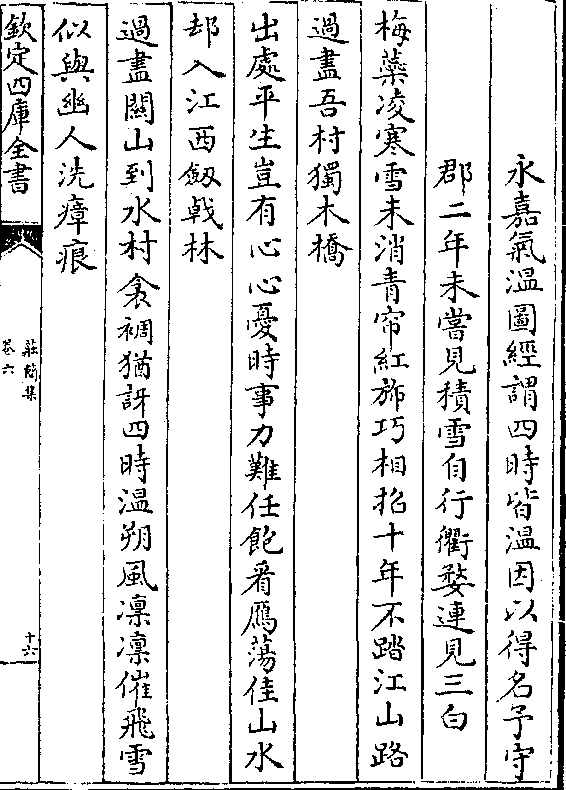 永嘉氣溫圖經謂四時皆溫因以得名予守
郡二年未嘗見積雪自行衢婺連見三白
梅蘂凌寒雪未消青帘紅斾巧相招十年不踏江山路
過盡吾村獨木橋
出處平生豈有心心憂時事力難任飽看鴈蕩佳山水
却入江西劔㦸林
過盡闗山到水村衾裯猶訝四時溫朔風凛凛催飛雪
似與幽人洗瘴痕
欽定四庫全書
莊簡集
卷六
十六